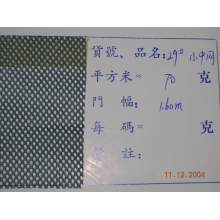 貨號、品名:29# 小中网
平方米≈ 70 克
門 幅: 1.60m
每 碼= 克
備 註:
11.12.2004